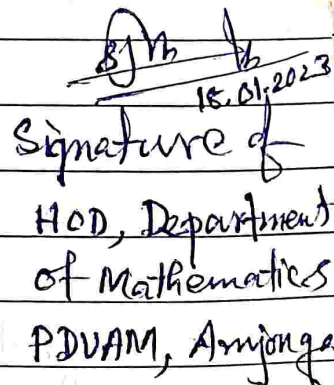 18.01.2023
Signature of
HOD, Department
of Mathematics
PDUAM, Amjonga